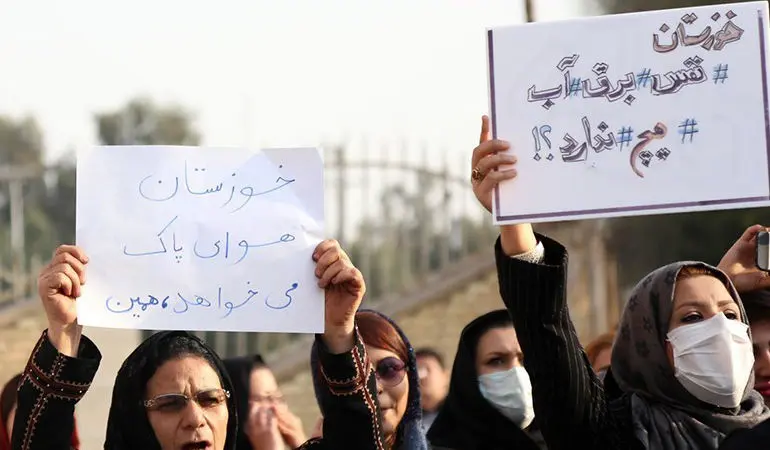 خوزستان
هوای پاک
می خواهد، همین
خوزستان
#نفس#برق#آب
#هیچ#ندارد؟!